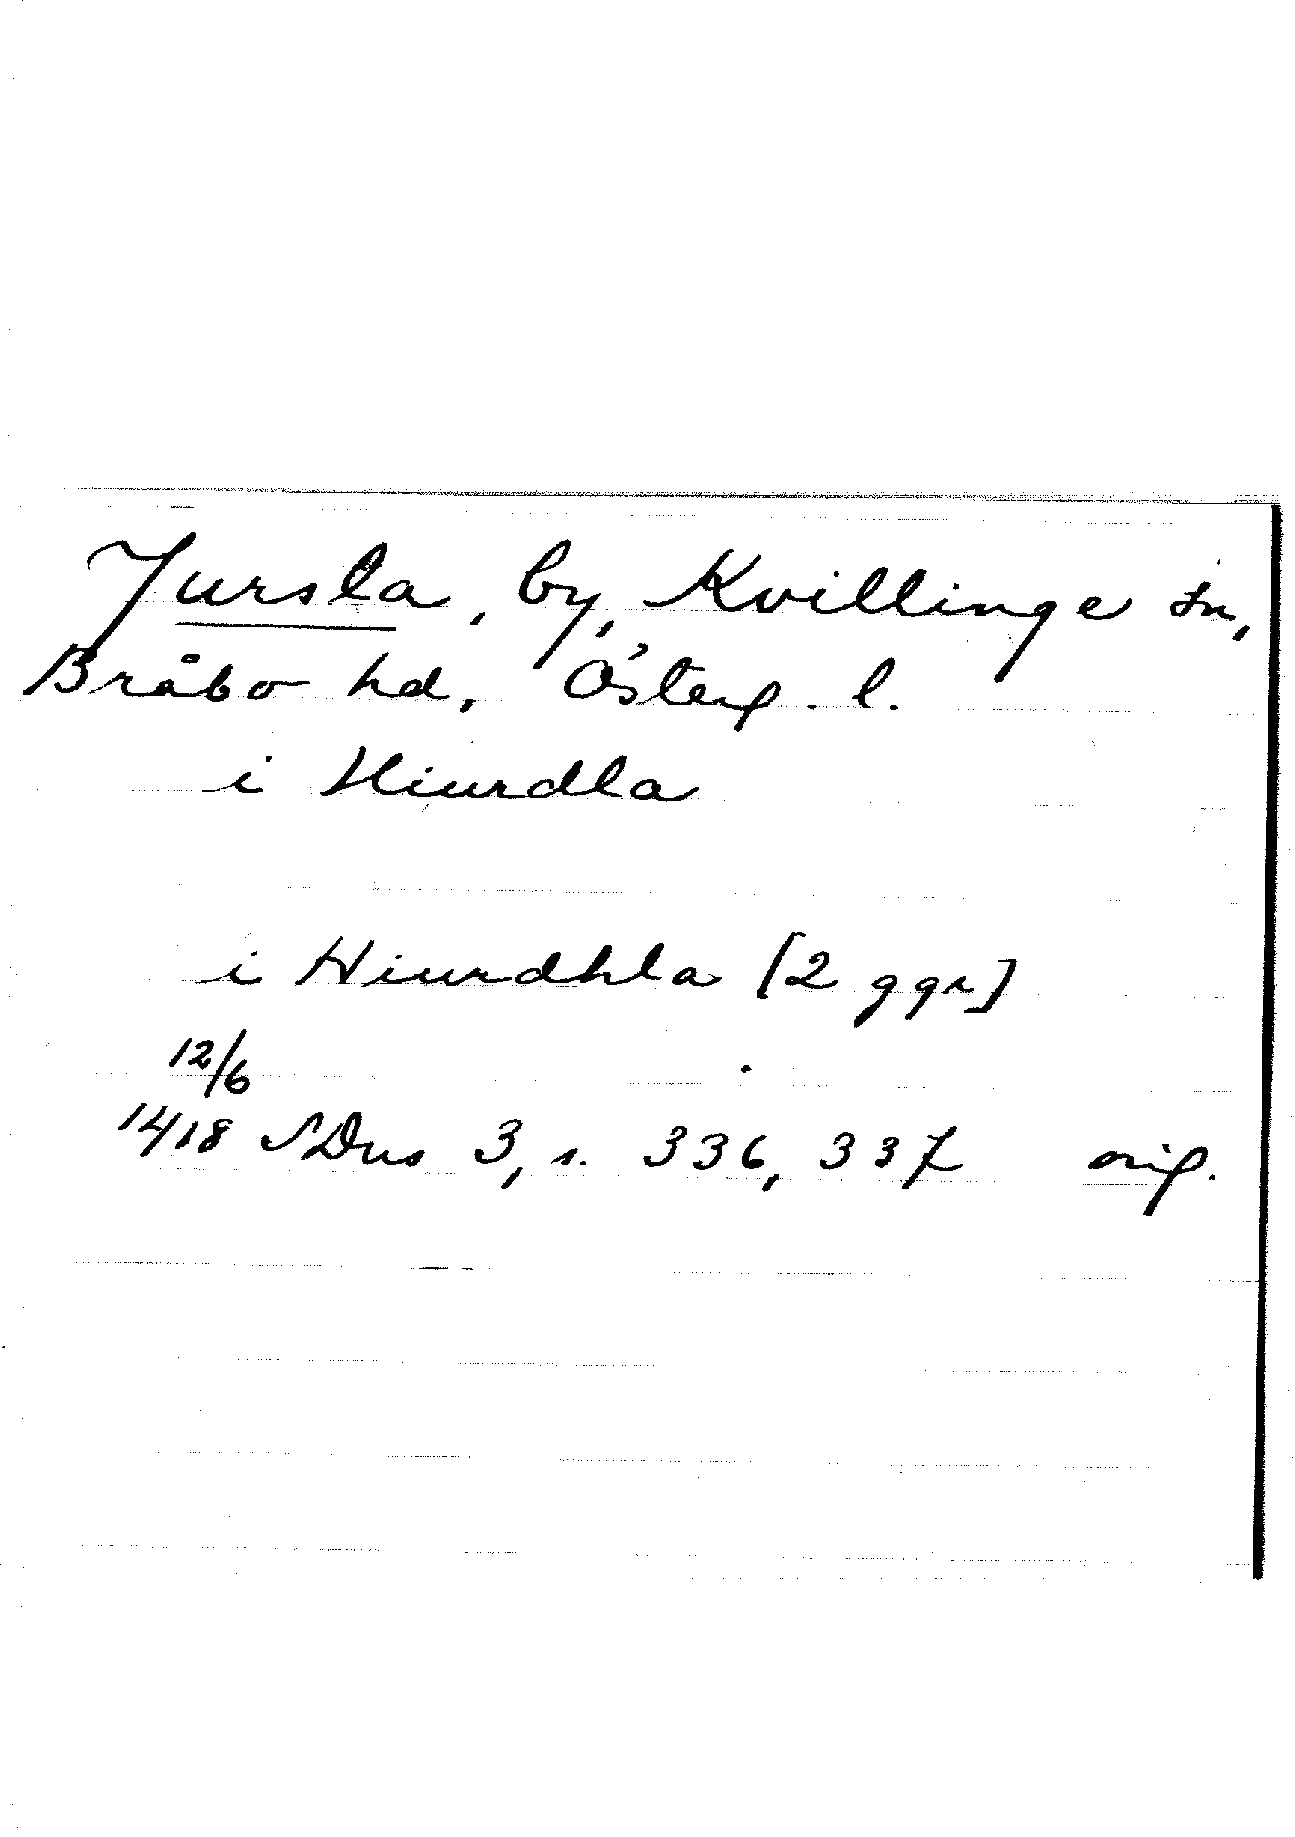 Jursla, by, Kvillinge sn,
Bråbo hd, Österg. l.
i Hiurdla
i Hiurdhla [2 ggr]
12/6
1418 SDns 3, s. 336, 337 orig.